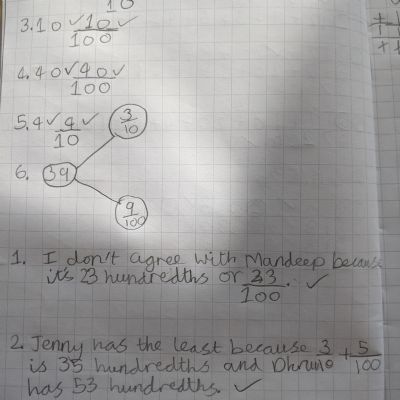 10
3. 10 ✓ 10/100 ✓
4. 40 ✓ 40/100 ✓
5. 4 ✓ 4/10 ✓
3/10
6. 39
9/100
1. I don't agree with Mandeep because
it's 23 hundredths or 23/100. ✓
2. Jenny has the least because 3/10 + 5/100
is 35 hundredths and Dhruv
has 53 hundredths. ✓